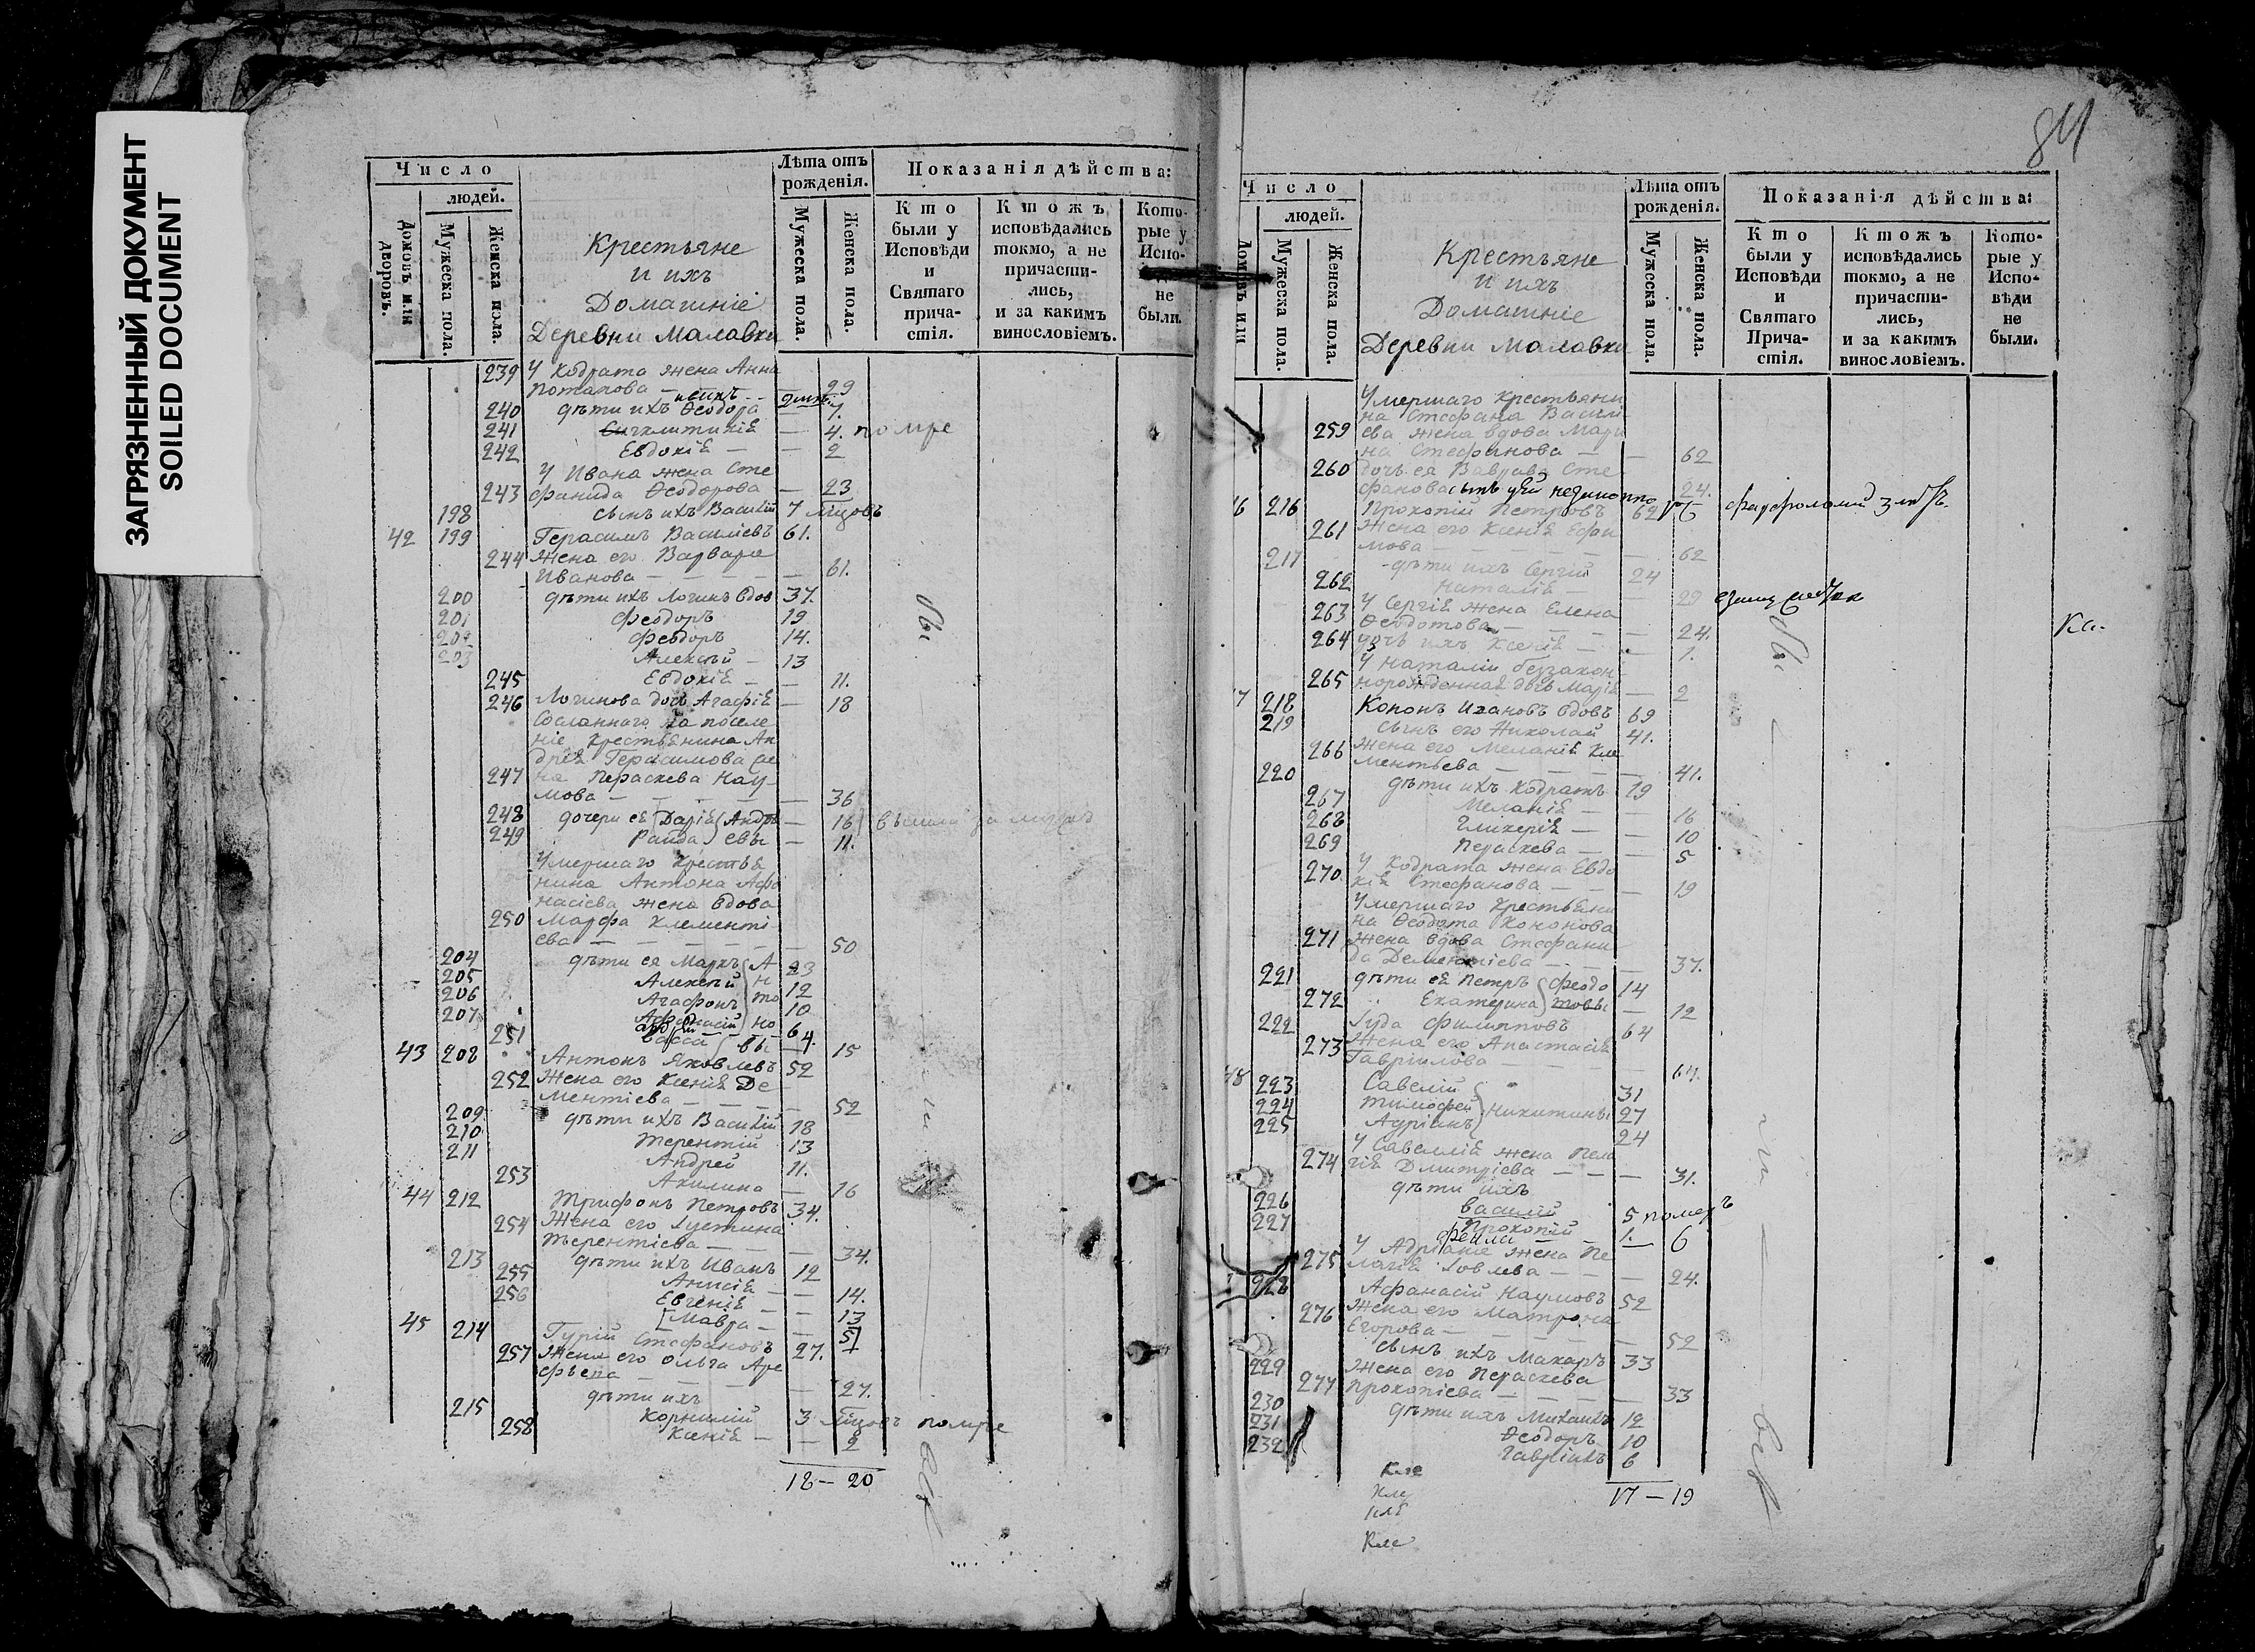 ЗАГРЯЗНЕННЫЙ ДОКУМЕНТ
SOILED DOCUMENT
Число
людей.
Домовъ или дворовъ.
Мужеска пола.
Женска пола.
Крестьяне
и ихъ
Домашніе
Деревни Малавки
Лѣта отъ рожденія.
Мужеска пола.
Женска пола.
Показанія дѣйства:
Кто были у Исповѣди и Святаго причастія.
Ктожъ исповѣдались токмо, а не причастились, и за какимъ винословіемъ.
Которые у Испо- не были.
239 У Кодрата жена Анна
Потапова — 29
240 дѣти ихъ Ѳеодора 7.
241 Сигклитикіѣ — 4. помре
242 Евдокіѣ — 2
У Ивана жена Сте
243 фанида Ѳеодорова — 23
198 сынъ ихъ Василій 7 мцовъ
42 199 Герасимъ Василіевъ 61.
244 Жена его Варвара
Иванова — 61.
200 дѣти ихъ Логинъ вдов 37.
201 Феодоръ 19
202 Феодоръ 14.
203 Алексѣй — 13
245 Евдокіѣ — 11.
246 Логинова дочь Агафіѣ — 18
Сосланнаго на поселе
ніе крестьѣнина Ан
дреѣ Герасимова же
247 на Пераскева Нау-
мова — 36
248 дочери еѣ Даріѣ Андрѣ — 16
249 Раида евы — 11.
Умершаго крестьѣ
нина Антона Афо
насіева жена вдова
250 Марфа Клементі-
ева — 50
204 дѣти ея Маркъ А 23
205 Алексѣй н 12
206 Агафонъ то 10
207 Афанасій но 6
251 Васса вы — 15
43 208 Антонъ Яковлевъ 52
252 Жена его Ксеніѣ Де
ментіева — 52
209 дѣти ихъ Василій 18
210 Терентій 13
211 Андрей 11.
253 Акилина — 16
44 212 Трифонъ Петровъ 34.
254 Жена его Іустина
Терентіева — 34.
213 дѣти ихъ Иванъ 12
255 Анисіѣ — 14.
256 Евгеніѣ — 13
Мавра —
45 214 Гурій Стефановъ 27.
257 Жена его Ольга Аре
фьева — 27.
дѣти ихъ
215 Корнилій 3 мцовъ помре
258 Ксеніѣ — 2
18 — 20
84
Число
людей.
Домовъ или
Мужеска пола.
Женска пола.
Крестьяне
и ихъ
Домашніе
Деревни Малавки
Лѣта отъ рожденія.
Мужеска пола.
Женска пола.
Показанія дѣйства:
Кто были у Исповѣди и Святаго Причастія.
Ктожъ исповѣдались токмо, а не причастились, и за какимъ винословіемъ.
Которые у Исповѣди не были.
Умершаго крестьяни
на Стефана Васил
259 ева жена вдова Мари
на Стефанова — 62
260 дочь ея Варвара Сте
фанова 24.
216 Прокопій Петровъ 62
261 Жена его Ксеніѣ Ефи
мова — 62
217 дѣти ихъ Сергій 24
262 Наталіѣ — 29
263 У Сергіѣ жена Елена
Ѳеодотова — 24.
264 дочь ихъ Ксеніѣ — 1.
У Наталіи беззакон
265 норожденнаѣ дочь Маріѣ — 2
218 Кононъ Ивановъ вдовъ 69
219 Сынъ его Николай 41.
266 Жена его Меланіѣ Кле
ментьева — 41.
220 дѣти ихъ Кодратъ 19
267 Меланіѣ — 16
268 Гликеріѣ — 10
269 Пераскева — 5
270 У Кодрата жена Евдо
кіѣ Стефанова — 19
Умершаго крестьѣни
на Ѳеодота Кононова
271 жена вдова Стефани
да Дементіева — 37.
221 дѣти еѣ Петръ Феодо 14
272 Екатерина товы — 12
222 Іуда Филипповъ 64
273 Жена его Анастасіѣ
Гавріилова — 64.
48 223 Савелій 31
224 Тимофей Никитины 27
225 Адріанъ 24
У Савеліѣ жена Пела
274 гіѣ Дмитріева — 31.
дѣти ихъ
226 Василій 5 померъ
227 Прокопій 1.
У Адріана жена Пе
275 лагіѣ Іовлева — 24.
228 Афанасій Наумовъ 52
276 Жена его Матрона
Егорова — 52
229 сынъ ихъ Макаръ 33
Жена его Пераскева
277 Прокопіева — 33
230 дѣти ихъ Михаилъ 12
231 Ѳеодоръ 10
232 Гавріилъ 6
17 — 19
Кле
Кле
Кле